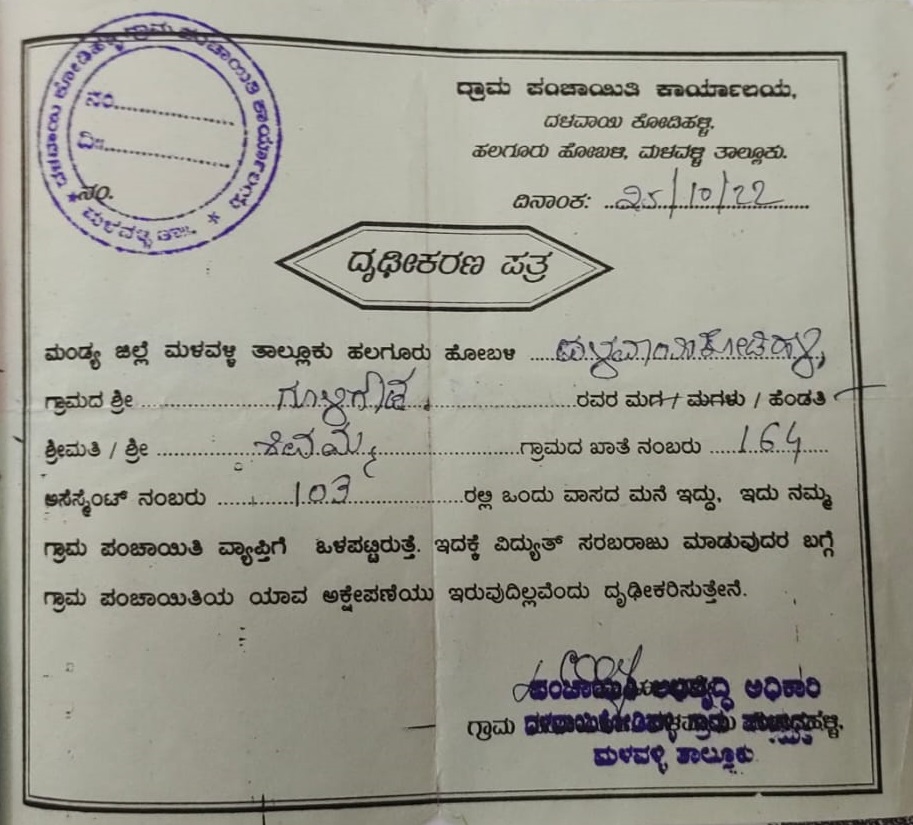 ದಳವಾಯಿ ಕೋಡಿಹಳ್ಳಿ ಗ್ರಾಮ ಪಂಚಾಯಿತಿ ಕಾರ್ಯಾಲಯ
* ಮಳವಳ್ಳಿ ತಾ||. *
ನಂ..................
ವಿ||..................
ನಂ.
ಗ್ರಾಮ ಪಂಚಾಯಿತಿ ಕಾರ್ಯಾಲಯ,
ದಳವಾಯಿ ಕೋಡಿಹಳ್ಳಿ,
ಹಲಗೂರು ಹೋಬಳಿ, ಮಳವಳ್ಳಿ ತಾಲ್ಲೂಕು.
ದಿನಾಂಕ: 25/10/22
ದೃಢೀಕರಣ ಪತ್ರ
ಮಂಡ್ಯ ಜಿಲ್ಲೆ ಮಳವಳ್ಳಿ ತಾಲ್ಲೂಕು ಹಲಗೂರು ಹೋಬಳಿ ದಳವಾಯಿಕೋಡಿಹಳ್ಳಿ,
ಗ್ರಾಮದ ಶ್ರೀ ಗೂಳಿಗೌಡ. ರವರ ಮಗ / ಮಗಳು / ಹೆಂಡತಿ
ಶ್ರೀಮತಿ / ಶ್ರೀ ಶಿವಮ್ಮ ಗ್ರಾಮದ ಖಾತೆ ನಂಬರು 164
ಅಸೆಸ್ಮೆಂಟ್ ನಂಬರು 103 ರಲ್ಲಿ ಒಂದು ವಾಸದ ಮನೆ ಇದ್ದು, ಇದು ನಮ್ಮ
ಗ್ರಾಮ ಪಂಚಾಯಿತಿ ವ್ಯಾಪ್ತಿಗೆ ಒಳಪಟ್ಟಿರುತ್ತೆ. ಇದಕ್ಕೆ ವಿದ್ಯುತ್ ಸರಬರಾಜು ಮಾಡುವುದರ ಬಗ್ಗೆ
ಗ್ರಾಮ ಪಂಚಾಯಿತಿಯ ಯಾವ ಅಕ್ಷೇಪಣೆಯು ಇರುವುದಿಲ್ಲವೆಂದು ದೃಢೀಕರಿಸುತ್ತೇನೆ.
ಪಂಚಾಯತಿ ಅಭಿವೃದ್ಧಿ ಅಧಿಕಾರಿ
ಗ್ರಾಮ ದಳವಾಯಿಕೋಡಿಹಳ್ಳಿ ಗ್ರಾಮ
ಮಳವಳ್ಳಿ ತಾಲ್ಲೂಕು